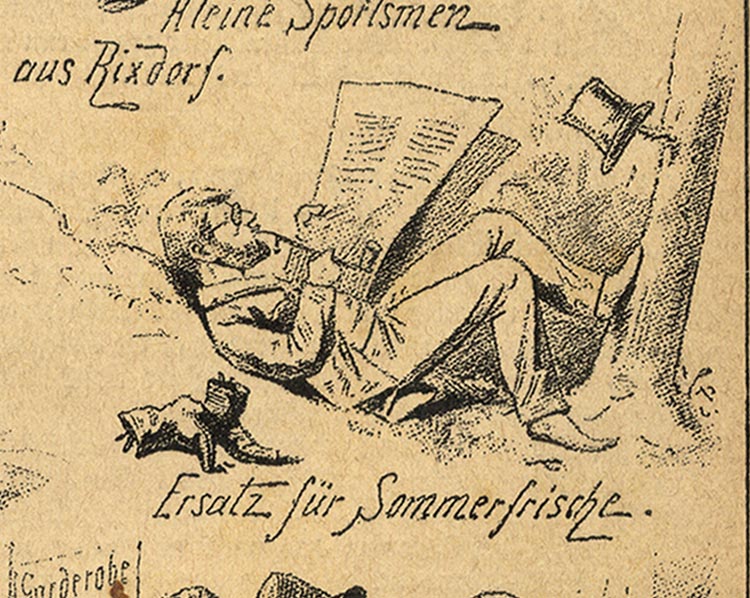 Kleine Sportsmen
aus Rixdorf.
Ersatz für Sommerfrische.
Garderobe